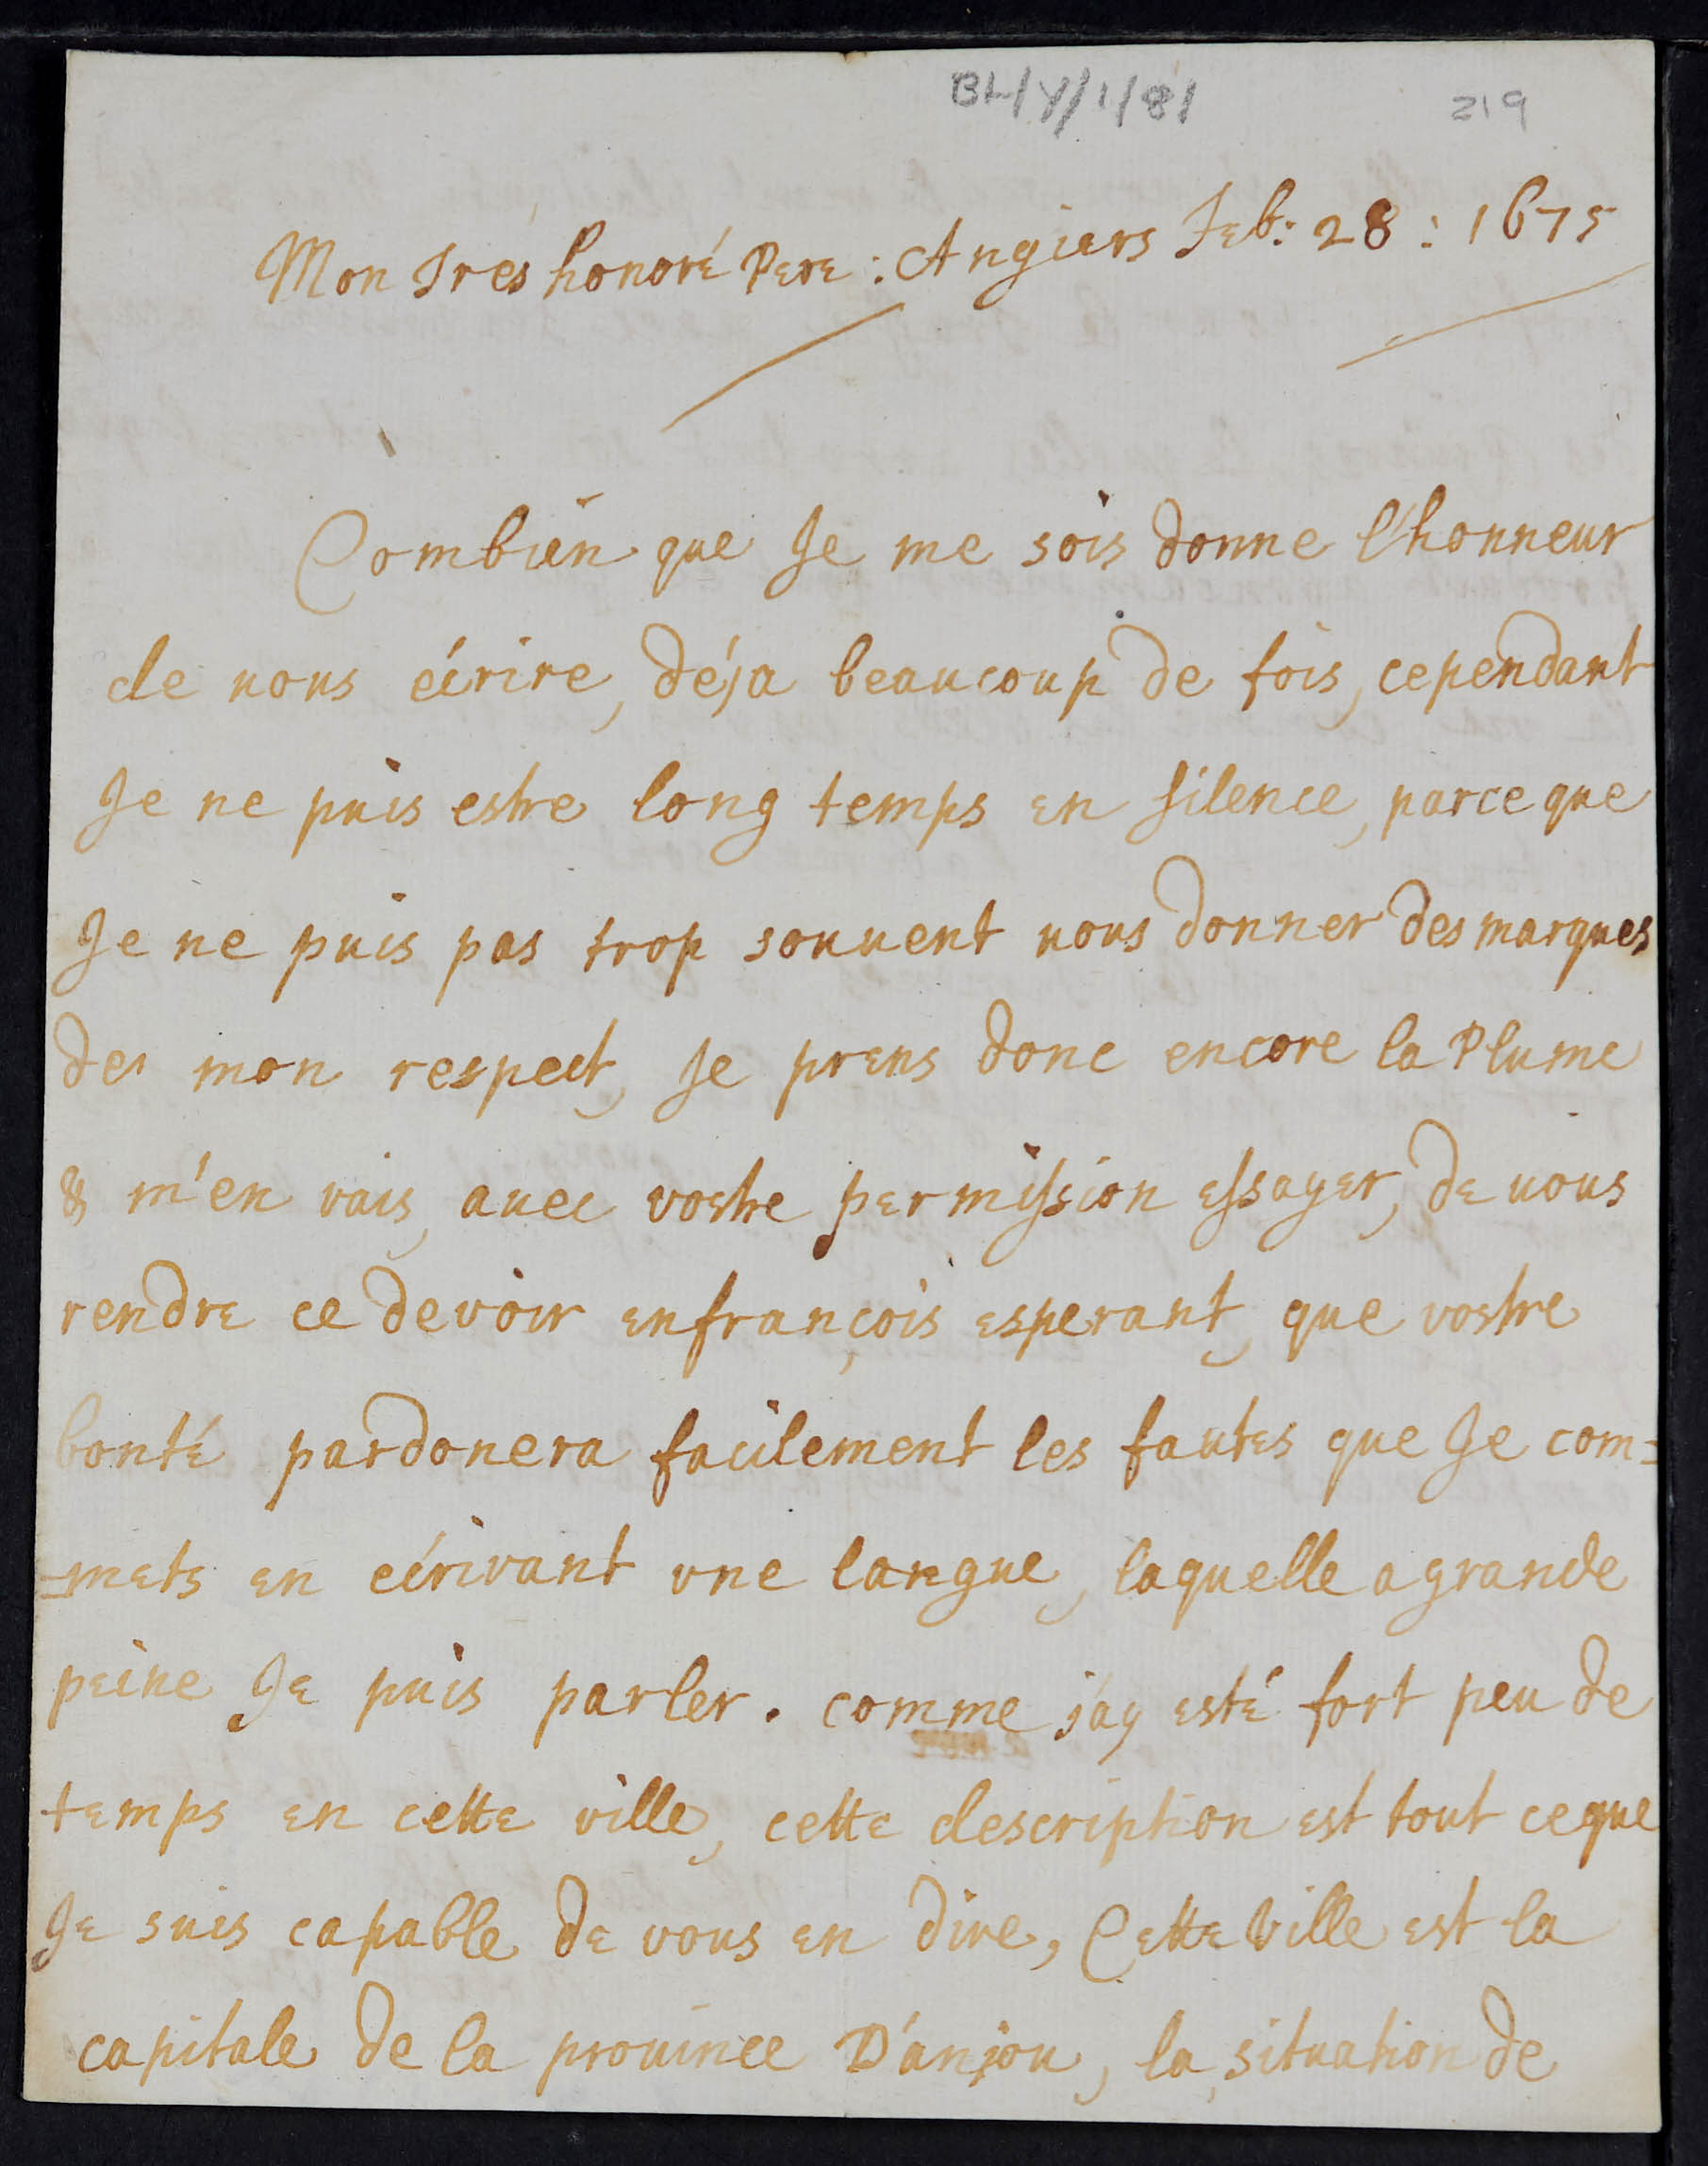 BL/Y/1/81
219
Mon Tres honoré Pere : Angiers Feb: 28 : 1675
Combien que Je me sois donne l'honneur
de uous écrire, déja beaucoup de fois, cependant
Je ne puis estre long temps en silence, parce que
Je ne puis pas trop souuent uous donner des marques
de mon respect, Je prens donc encore la Plume
& m'en vais, auec vostre permission essayer, de uous
rendre ce devoir en françois esperant, que vostre
bonté pardonera facilement les fautes que Je com=
=mets en écrivant vne langue, laquelle a grande
peine Je puis parler. comme j'ay esté fort peu de
temps en cette ville, cette description est tout ce que
Je suis capable de vous en dire, Cette Ville est la
capitale de la prouince D'anjou, la situation de